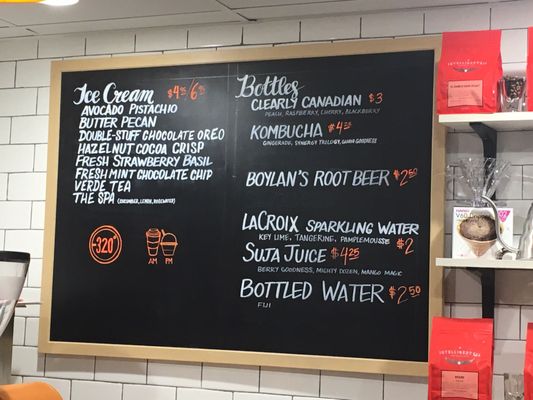 Ice Cream $4.25/6.25
AVOCADO PISTACHIO
BUTTER PECAN
DOUBLE-STUFF CHOCOLATE OREO
HAZELNUT COCOA CRISP
FRESH STRAWBERRY BASIL
FRESH MINT CHOCOLATE CHIP
VERDE TEA
THE SPA (CUCUMBER, LEMON, ROSEWATER)
-320°
AM PM
Bottles
CLEARLY CANADIAN $3
PEACH, RASPBERRY, CHERRY, BLACKBERRY
KOMBUCHA $4.25
GINGERADE, SYNERGY TRILOGY, GUAVA GOODNESS
BOYLAN'S ROOT BEER $2.50
LACROIX SPARKLING WATER
KEY LIME, TANGERINE, PAMPLEMOUSSE $2
SUJA JUICE $4.25
BERRY GOODNESS, MIGHTY DOZEN, MANGO MAGIC
BOTTLED WATER $2.50
FIJI
INTELLIGENTSIA
V60
INTELLIGENTSIA